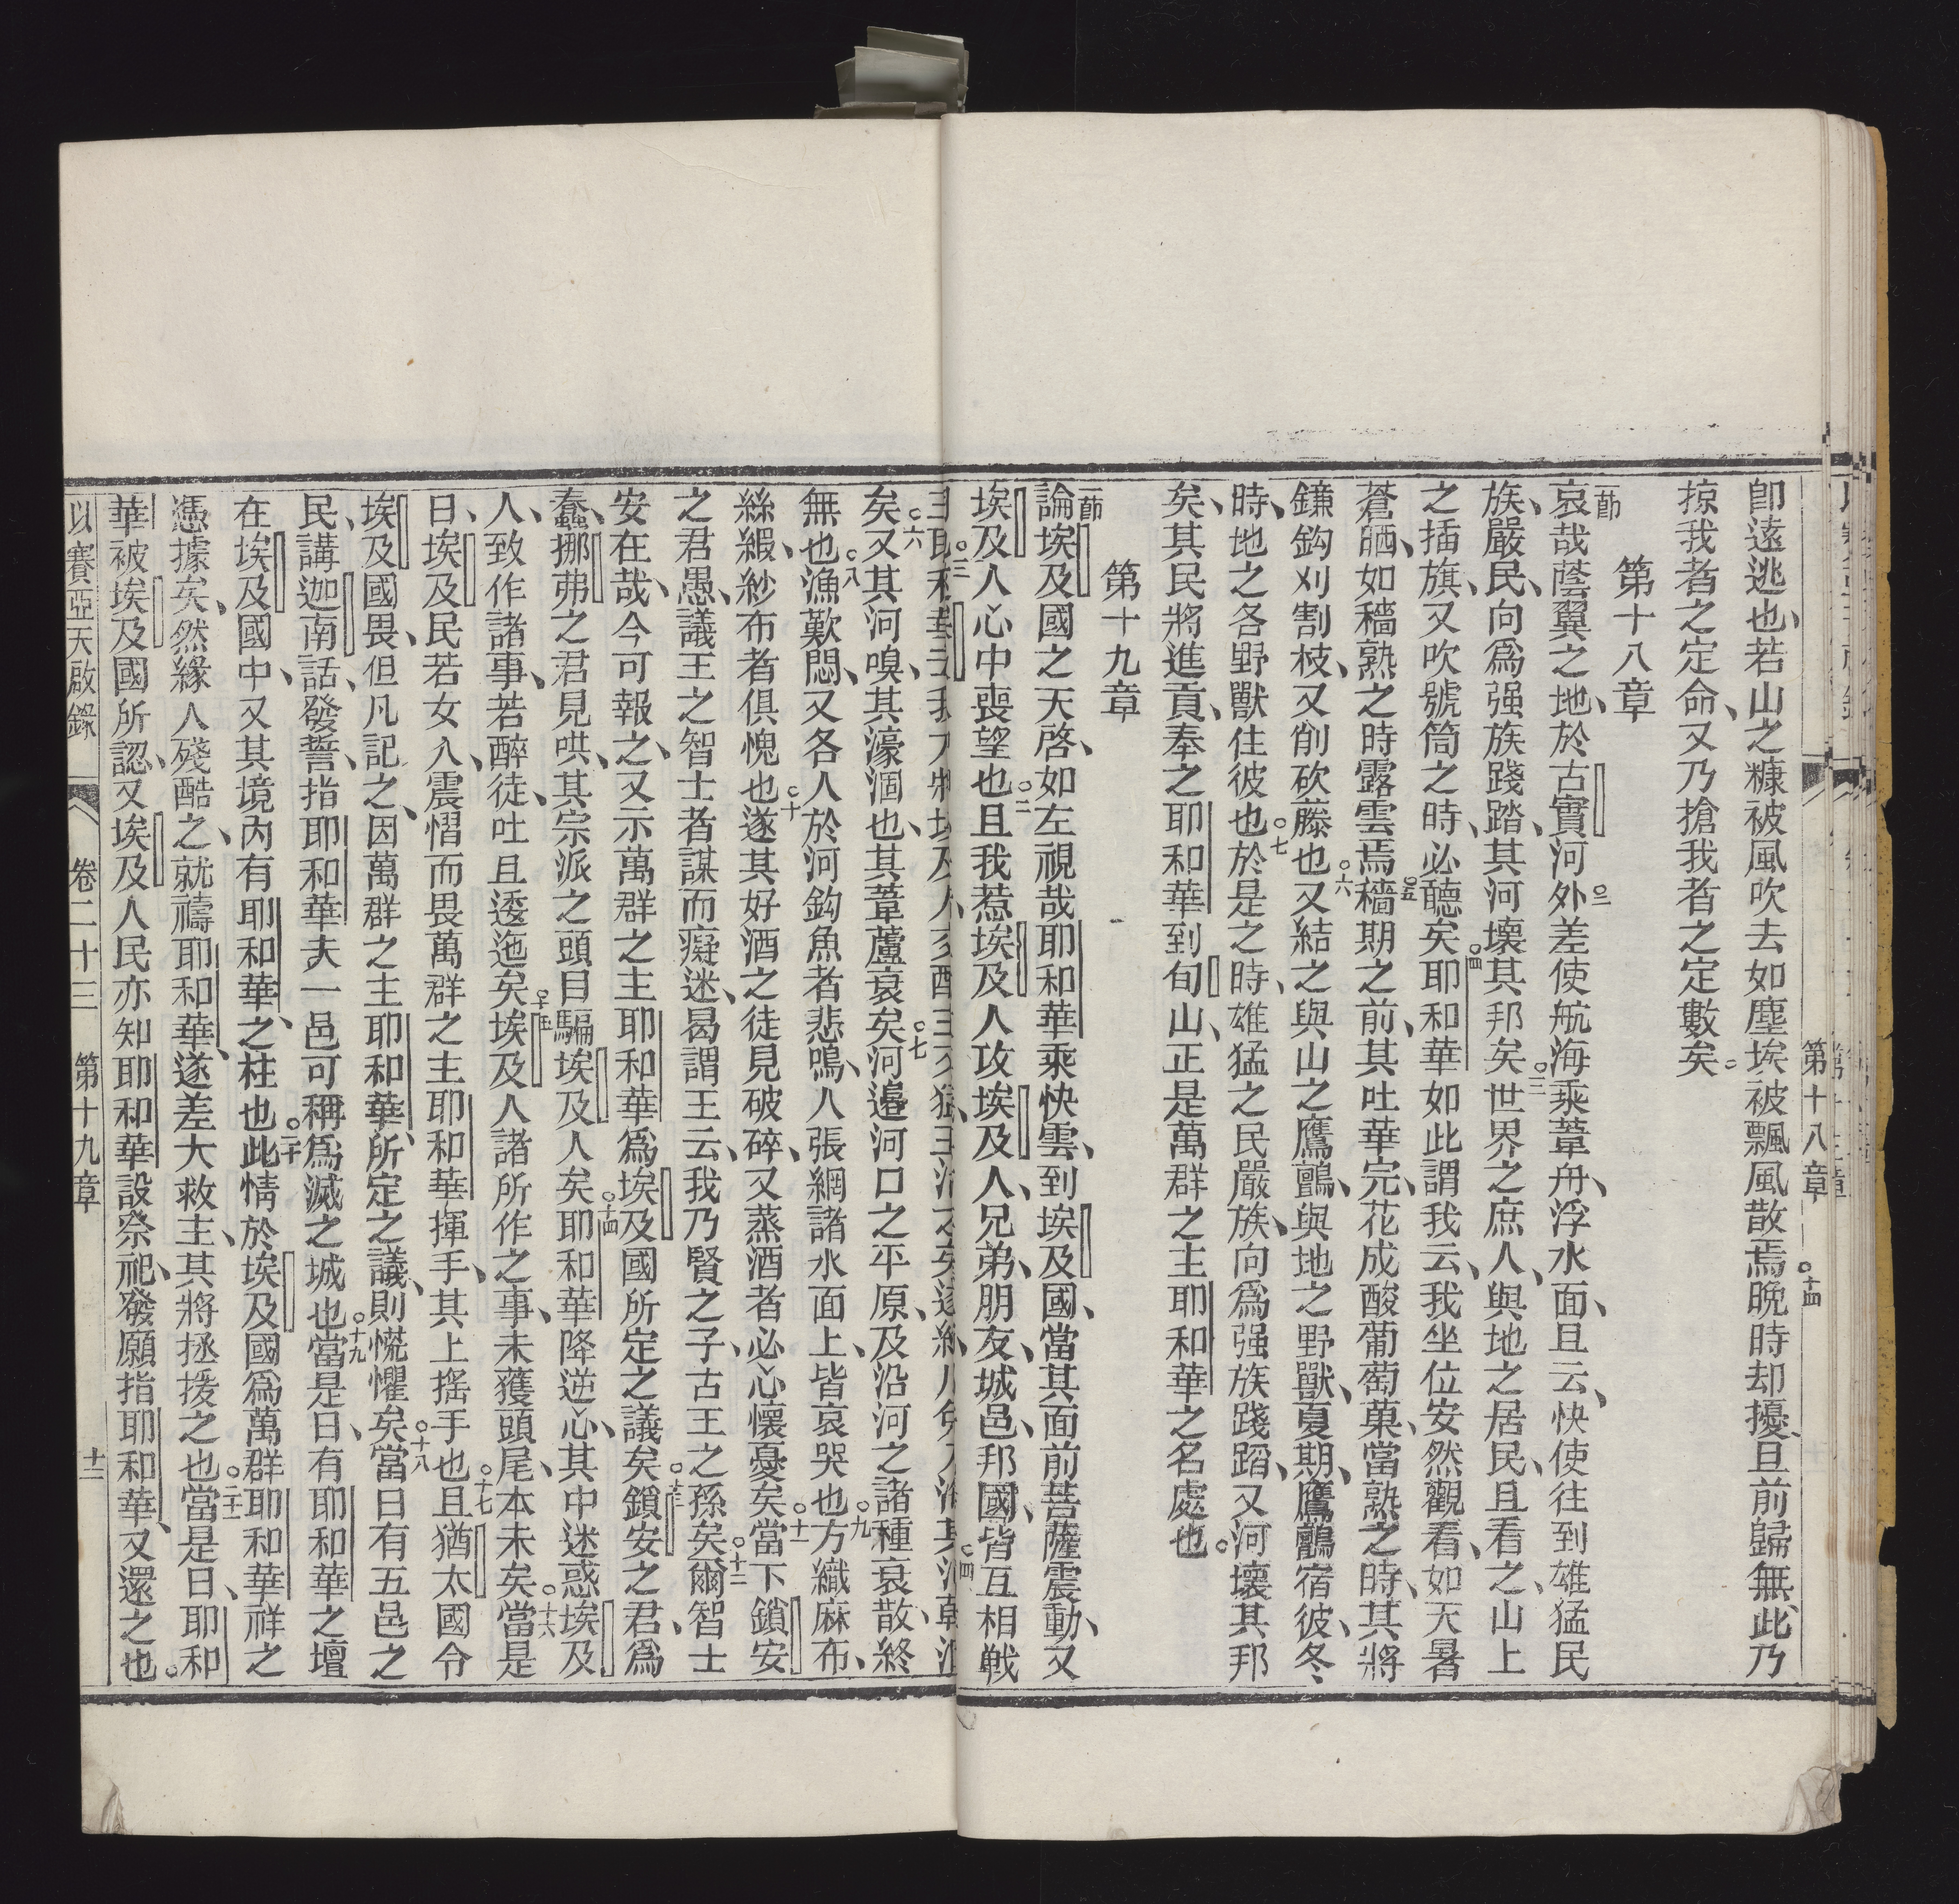 第十八章
卽遠逃也、若山之糠被風吹去如塵埃被飄風散焉○十四晚時却擾、旦前歸無、此乃
掠我者之定命、又乃搶我者之定數矣。
第十八章
一節哀哉蔭翼之地、於古實河外○二差使航海乘葦舟、浮水面、且云、快使往到雄猛民
族、嚴民、向爲强族踐踏、其河壞其邦矣○三世界之庶人、與地之居民、且看之、山上
之插旗、又吹號筒之時、必聽矣○四耶和華如此謂我云、我坐位安然觀看、如天暑
蒼晒、如穡熟之時露雲焉○五穡期之前、其吐華完、花成酸葡萄菓、當熟之時、其將
鐮鈎刈割枝、又削砍藤也○六又結之與山之鷹鸇、與地之野獸、夏期、鷹鸇宿彼、冬
時、地之各野獸住彼也○七於是之時、雄猛之民嚴族、向爲强族踐蹈、又河壞其邦
矣、其民將進貢、奉之耶和華到旬山、正是萬群之主耶和華之名處也。
第十九章
一節論埃及國之天啓、如左視哉耶和華乘快雲、到埃及國、當其面前菩薩震動、又
埃及人心中喪望也○二且我惹埃及人攻埃及人、兄弟、朋友、城邑、邦國、皆互相戰
矣○六又其河嗅、其濠涸也、其葦蘆衰矣○七河邉河口之平原、及沿河之諸種衰散、終
無也○八漁歎悶、又各人於河鈎魚者悲鳴、人張網諸水面上、皆哀哭也○九方織麻布、
絲緞、紗布者俱愧也○十遂其好酒之徒見破碎、又蒸酒者必心懷憂矣○十一當下鎖安
之君愚、議王之智士者謀而癡迷、曷謂王云、我乃賢之子、古王之孫矣○十二爾智士
安在哉、今可報之、又示萬群之主耶和華爲埃及國所定之議矣○十三鎖安之君、爲
蠢、挪弗之君見哄、其宗派之頭目騙埃及人矣○十四耶和華降逆心、其中迷惑埃及
人、致作諸事、若醉徒、吐且逶迤矣○十五埃及人諸所作之事、未獲頭尾、本末矣○十六當是
日、埃及民若女人、震慴而畏萬群之主耶和華揮手、其上搖手也○十七且猶太國令
埃及國畏、但凡記之、因萬群之主耶和華、所定之議、則慌懼矣○十八當日有五邑之
民、講迦南話、發誓、指耶和華、夫一邑可稱爲滅之城也○十九當是日、有耶和華之壇
在埃及國中、又其境內有耶和華、之柱也○二十此情於埃及國爲萬群耶和華祥之
憑據矣、然緣人殘酷之、就禱耶和華、遂差大救主、其將拯援之也○二十一當是日、耶和
華被埃及國所認、又埃及人民亦知耶和華設祭祀、發願指耶和華、又還之也。
以賽亞天啟錄 卷二十三 第十九章 十二